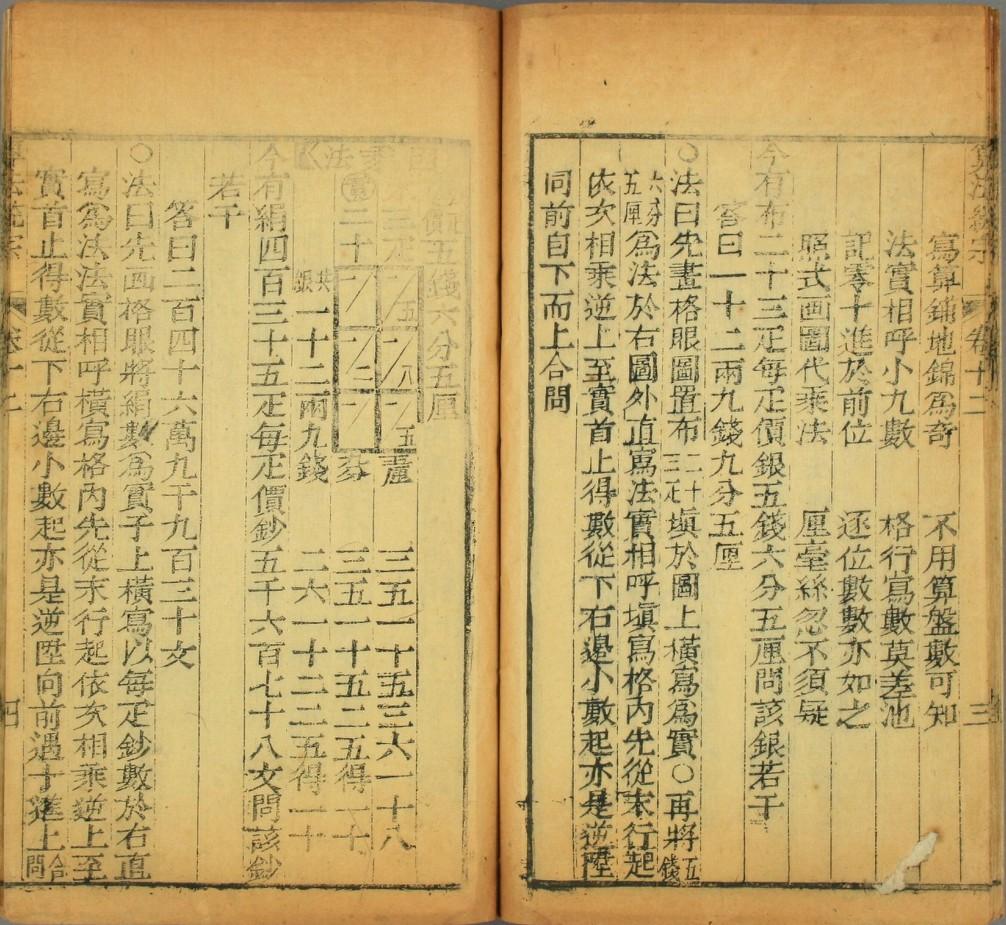 算法統宗 卷十二 三
寫算鋪地錦為奇 不用算盤數可知
法實相呼小九數 格行寫數莫差池
記零十進於前位 逐位數數亦如之
照式画圖代乘法 厘毫絲忽不須疑
今有布二十三疋每疋價銀五錢六分五厘問該銀若干
答曰一十二兩九錢九分五厘
○法曰先畫格眼圖置布二十三疋塡於圖上橫寫為實○再將五錢
六分五厘為法於右圖外直寫法實相呼塡寫格內先從末行起
依次相乘逆上至實首上得數從下右邊小數起亦是逆陞
同前自下而上合問
價五錢六分五厘
三疋 五 八 五 厘 三五一十五三六一十八
實二十 一 二 分 三五一十五二五得一十
共銀一十二兩九錢 二六一十二二五得一十
今有絹四百三十五疋每疋價鈔五千六百七十八文問該鈔
若干
答曰二百四十六萬九千九百三十文
○法曰先画格眼將絹數為實于上橫寫以每疋鈔數於右直
寫為法法實相呼橫寫格內先從末行起依次相乘逆上至
實首止得數從下右邊小數起亦是逆陞向前遇十進上合問
算法統宗 卷十二 四